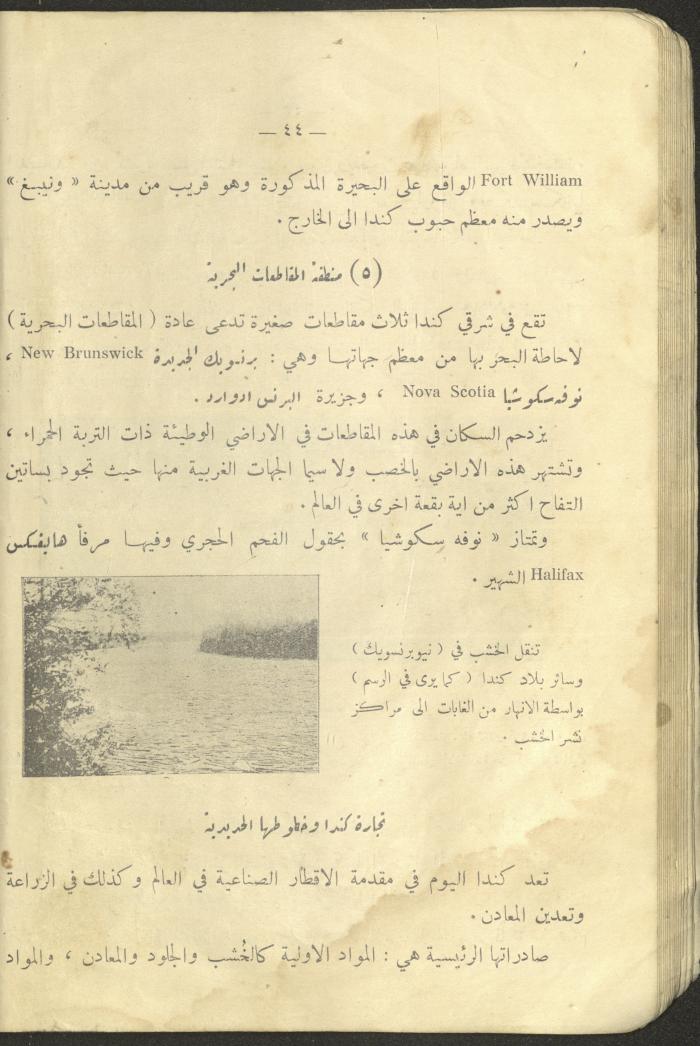 — ٤٤ —
Fort William الواقع على البحيرة المذكورة وهو قريب من مدينة « ونيبغ »
ويصدر منه معظم حبوب كندا الى الخارج .
(٥) منطقة المقاطعات البحرية
تقع في شرقي كندا ثلاث مقاطعات صغيرة تدعى عادة ( المقاطعات البحرية )
لاحاطة البحر بها من معظم جهاتها وهي : برنزويك الجديدة New Brunswick ،
نوفه سكوشيا Nova Scotia ، وجزيرة البرنس ادوارد .
يزدحم السكان في هذه المقاطعات في الاراضي الوطيئة ذات التربة الحمراء ،
وتشتهر هذه الاراضي بالخصب ولا سيما الجهات الغربية منها حيث تجود بساتين
التفاح اكثر من اية بقعة اخرى في العالم .
وتمتاز « نوفه سكوشيا » بحقول الفحم الحجري وفيها مرفأ هاليفكس
Halifax الشهير .
تنقل الخشب في ( نيوبرنسويك )
وسائر بلاد كندا ( كما يرى في الرسم )
بواسطة الانهار من الغابات الى مراكز
نشر الخشب .
تجارة كندا وخطوطها الحديدية
تعد كندا اليوم في مقدمة الاقطار الصناعية في العالم وكذلك في الزراعة
وتعدين المعادن .
صادراتها الرئيسية هي : المواد الاولية كالخُشب والجلود والمعادن ، والمواد